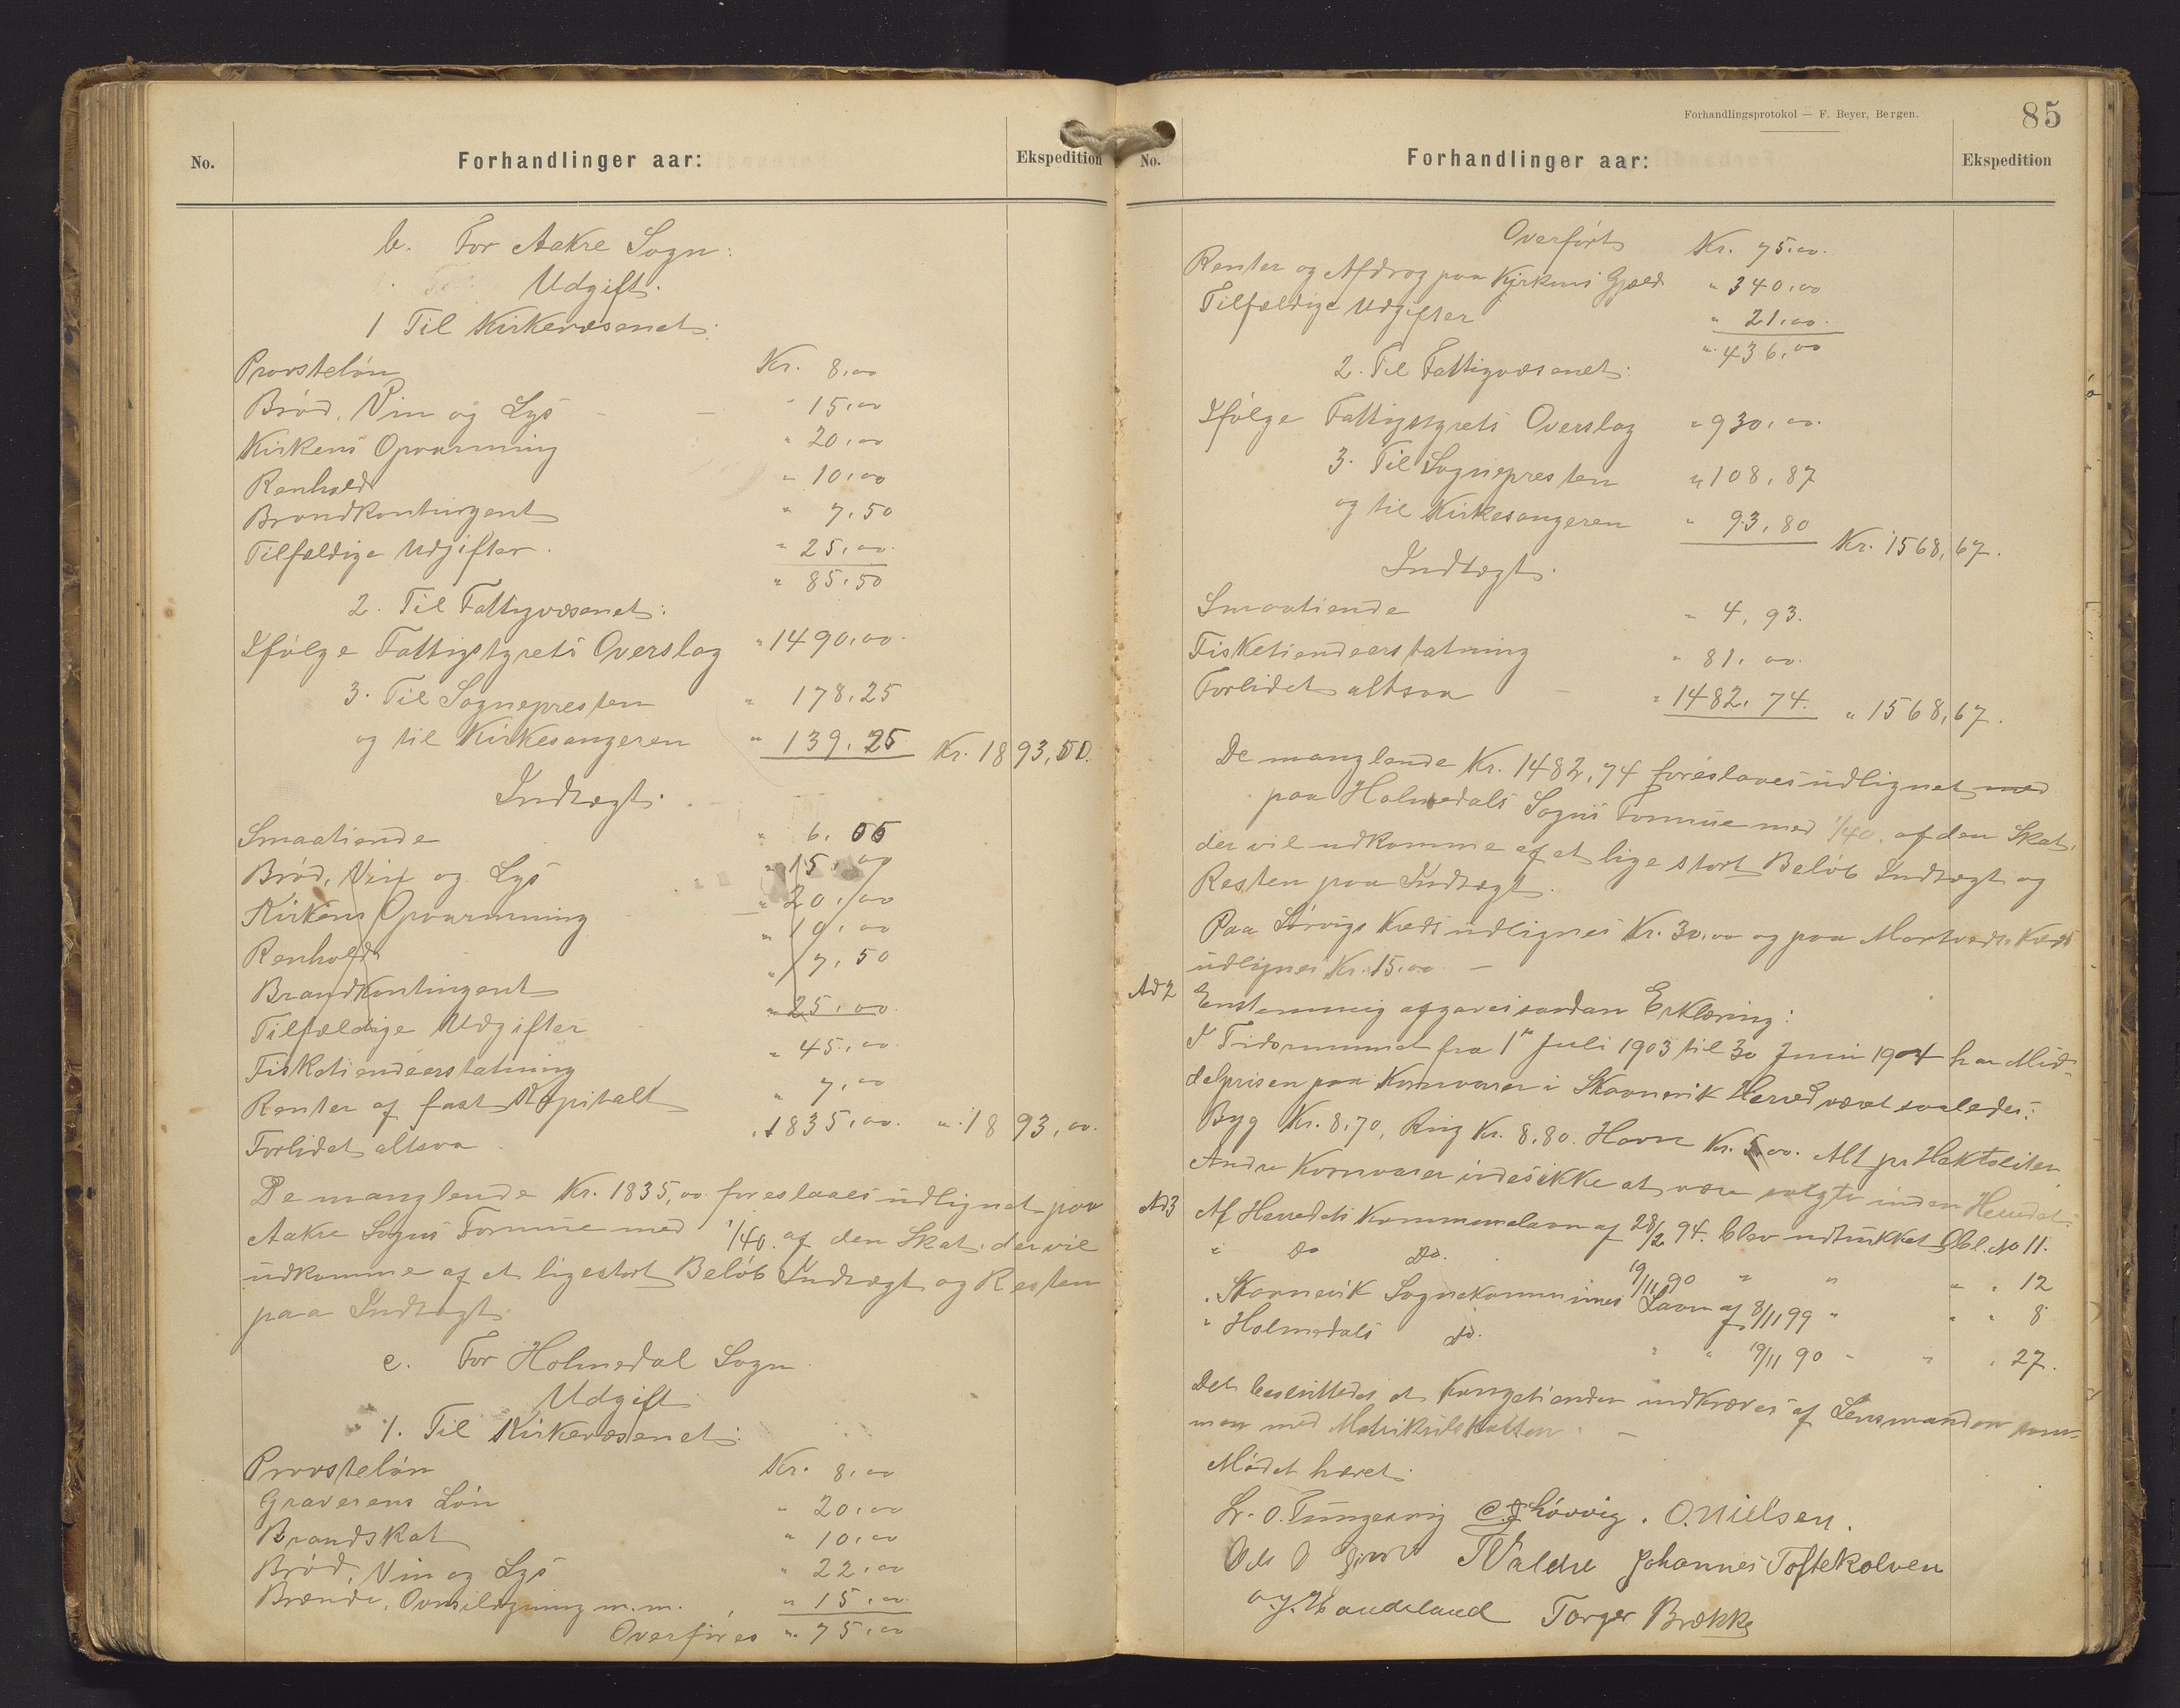 No.
Forhandlinger aar:
Ekspedition
b. For Aakre Sogn:
Udgift.
1 Til Kirkevæsenet:
Provsteløn Kr. 8,00
Brød, Vin og Lys - - " 15,00
Kirkens Opvarmning " 20,00
Renhold " 10,00
Brandkontingent " 7,50
Tilfældige Udgifter. " 25,00.
" 85,50
2. Til Fattigvæsenet:
Ifølge Fattigstyrets Overslag " 1490,00.
3. Til Sognepresten " 178,25
og til Kirkesangeren " 139,25 Kr. 1893,00.
Indtægt.
Smaatiende " 6,00
Brød, Vin og Lys " 15,00
Kirkens Opvarmning " 20,00
Renhold " 10,00
Brandkontingent " 7,50
Tilfældige Udgifter " 25,00.
Fisketiendeerstatning " 45,00.
Renter af fast Kapital " 7,00
Forlidet altsaa " 1835,00. " 1893,00.
De manglende Kr. 1835,00 foreslaaes udlignet paa
Aakre Sogns Formue med 1/40. af den Skat, der vil
udkomme af et ligestort Beløb Indtægt og Resten
paa Indtægt.
c. For Holmedal Sogn
Udgift
1. Til Kirkevæsenet:
Provsteløn Kr. 8,00
Graverens Løn " 20,00
Brandskat " 10,00
Brød, Vin og Lys " 22,00
Brænde, Ovnsilægning m.m. " 15,00.
Overføres " 75,00
Forhandlingsprotokol — F. Beyer, Bergen.
85
No.
Forhandlinger aar:
Ekspedition
Overført Kr. 75,00.
Renter og Afdrag paa Kirkens Gjæld " 340,00
Tilfældige Udgifter " 21,00.
" 436,00
2. Til Fattigvæsenet.
Ifølge Fattigstyrets Overslag " 930,00.
3. Til Sognepresten " 108,87
og til Kirkesangeren " 93,80 Kr. 1568,67.
Indtægt.
Smaatiende " 4,93.
Fisketiendeerstatning " 81,00.
Forlidet altsaa - " 1482,74. " 1568,67.
De manglende Kr. 1482,74 foreslaaes udlignet med
paa Holmedals Sogns Formue med 1/40. af den Skat,
der vil udkomme af et lige stort Beløb Indtægt og
Resten paa Indtægt.
Paa Sørvigs Kreds udlignes Kr. 30,00 og paa Kreds
udlignes Kr. 15,00. —
Ad 2 Enstemmig afgaves saadan Erklæring:
I Tidsrummet fra 1ste Juli 1903 til 30 Juni 1904 har Mid-
delprisen paa Kornvarer i Skaanevik Herred været saaledes:
Byg Kr. 8,70, Rug Kr. 8,80. Havre Kr. 5,00. Alt pr Hektoliter
Andre Kornvarer vides ikke at være solgte inden Herredet.
Ad 3 Af Herredets Kommunelaan af 28/2 94. blev udtrukket Obl. No 11.
" Do Do. 19/11 90 " " " " 12
" Skaanevik Sognekommunes Laan af 8/11 99 " " " 8
" Holmedals do. " " 19/11 90 " " " 27.
Det besluttedes at Kongetienden indkræves af Lensmanden sam-
men med Matrikulskatten. —
Mødet hævet.
L. O. Tungesvig C. J. Løvvig. O. Nielsen.
T Valdre Johannes Toftekolven
Torger Brække